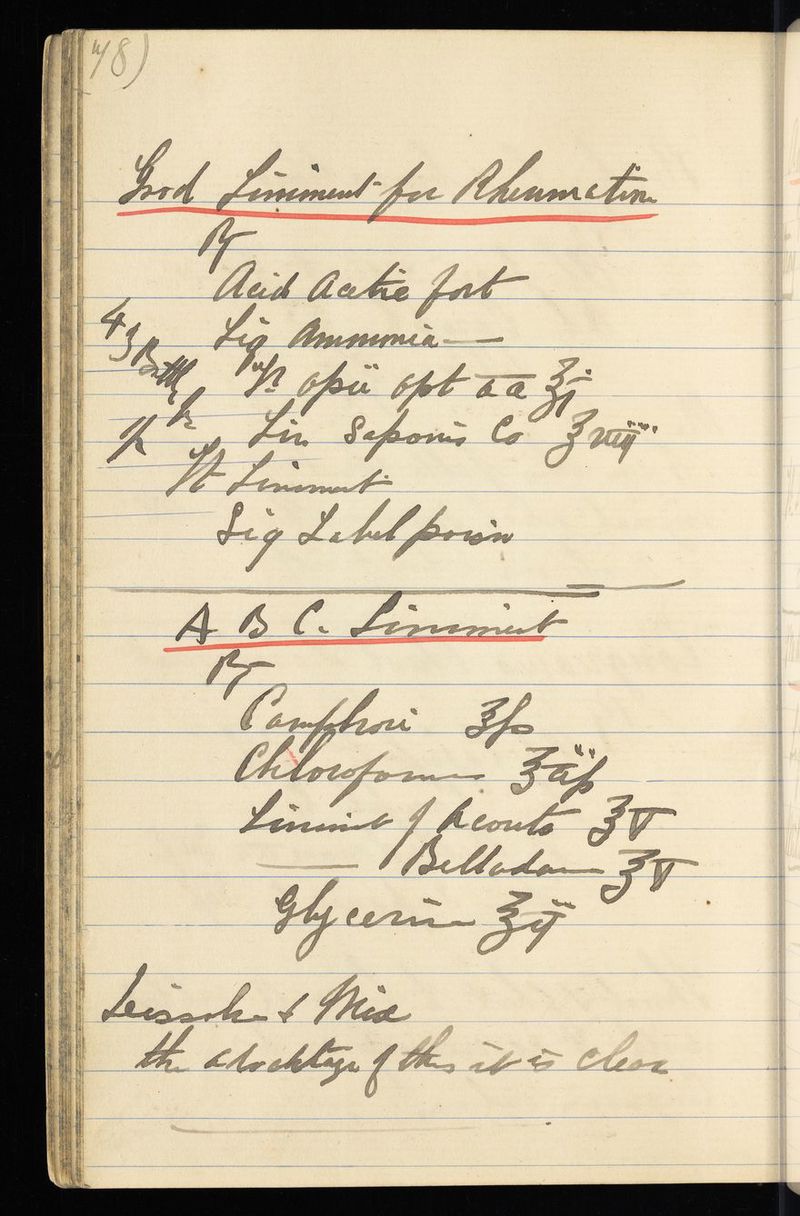 48)
Good Liniment for Rheumatism
℞
Acid Acetic fort
Liq Ammonia —
Tr opii opt aa ℥j
Lin Saponis Co ℥viij
ft Liniment
Sig Label poison
A B C. Liniment
℞
Camphori ℥ſs
Chloroform ℥iiſs
Liniment of Aconite ℥V
— Belladonna ℥V
Glycerine ℥ij
Dissolve & Mix
the advantage of this it is clear